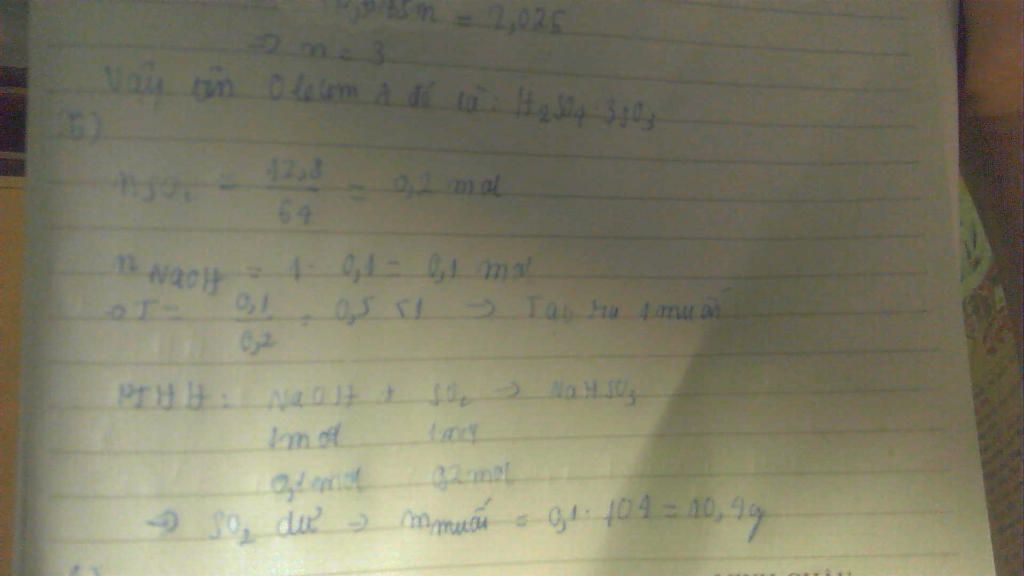 n = 2,025
=> n = 3
Vậy tên Oleum A đó là: H2SO4.3SO3
5)
nSO2 = 12,8/64 = 0,2 mol
nNaOH = 1. 0,1 = 0,1 mol
T = 0,1/0,2 = 0,5 <1 => Tạo ra 1 muối
PTHH: NaOH + SO2 -> NaHSO3
1mol 1mol
0,1mol 0,2mol
=> SO2 dư => mmuối = 0,1. 104 = 10,4g